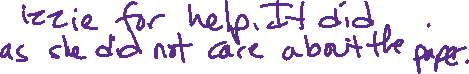 izzie for help. It did
as she did not care about the paper.